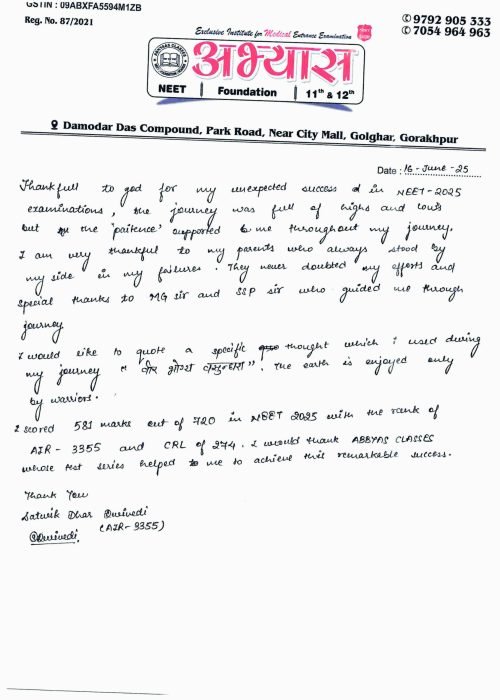 GSTIN : 09ABXFA5594M1ZB
Reg. No. 87/2021
9792 905 333
7054 964 963
Exclusive Institute for Medical Entrance Examination
अभ्यास
NEET | Foundation | 11th & 12th
Damodar Das Compound, Park Road, Near City Mall, Golghar, Gorakhpur
Date : 16-June-25
Thankfull to god for my unexpected success in NEET-2025
examinations, the journey was full of highs and lows
but the 'paitence' supported me throughout my journey.
I am very thankful to my parents who always stood by
my side in my failures. They never doubted my efforts and
special thanks to MG sir and SSP sir who guided me through
journey
I would like to quote a specific thought which i used during
my journey " वीर भोग्या वसुन्धरा". The earth is enjoyed only
by warriors.
I scored 581 marks out of 720 in NEET 2025 with the rank of
AIR- 3355 and CRL of 274. I would thank ABBYAS CLASSES
whose test series helped to me to achieve this remarkable success.
Thank You
Satwik Dhar Dwivedi
(AIR-3355)
Dwivedi